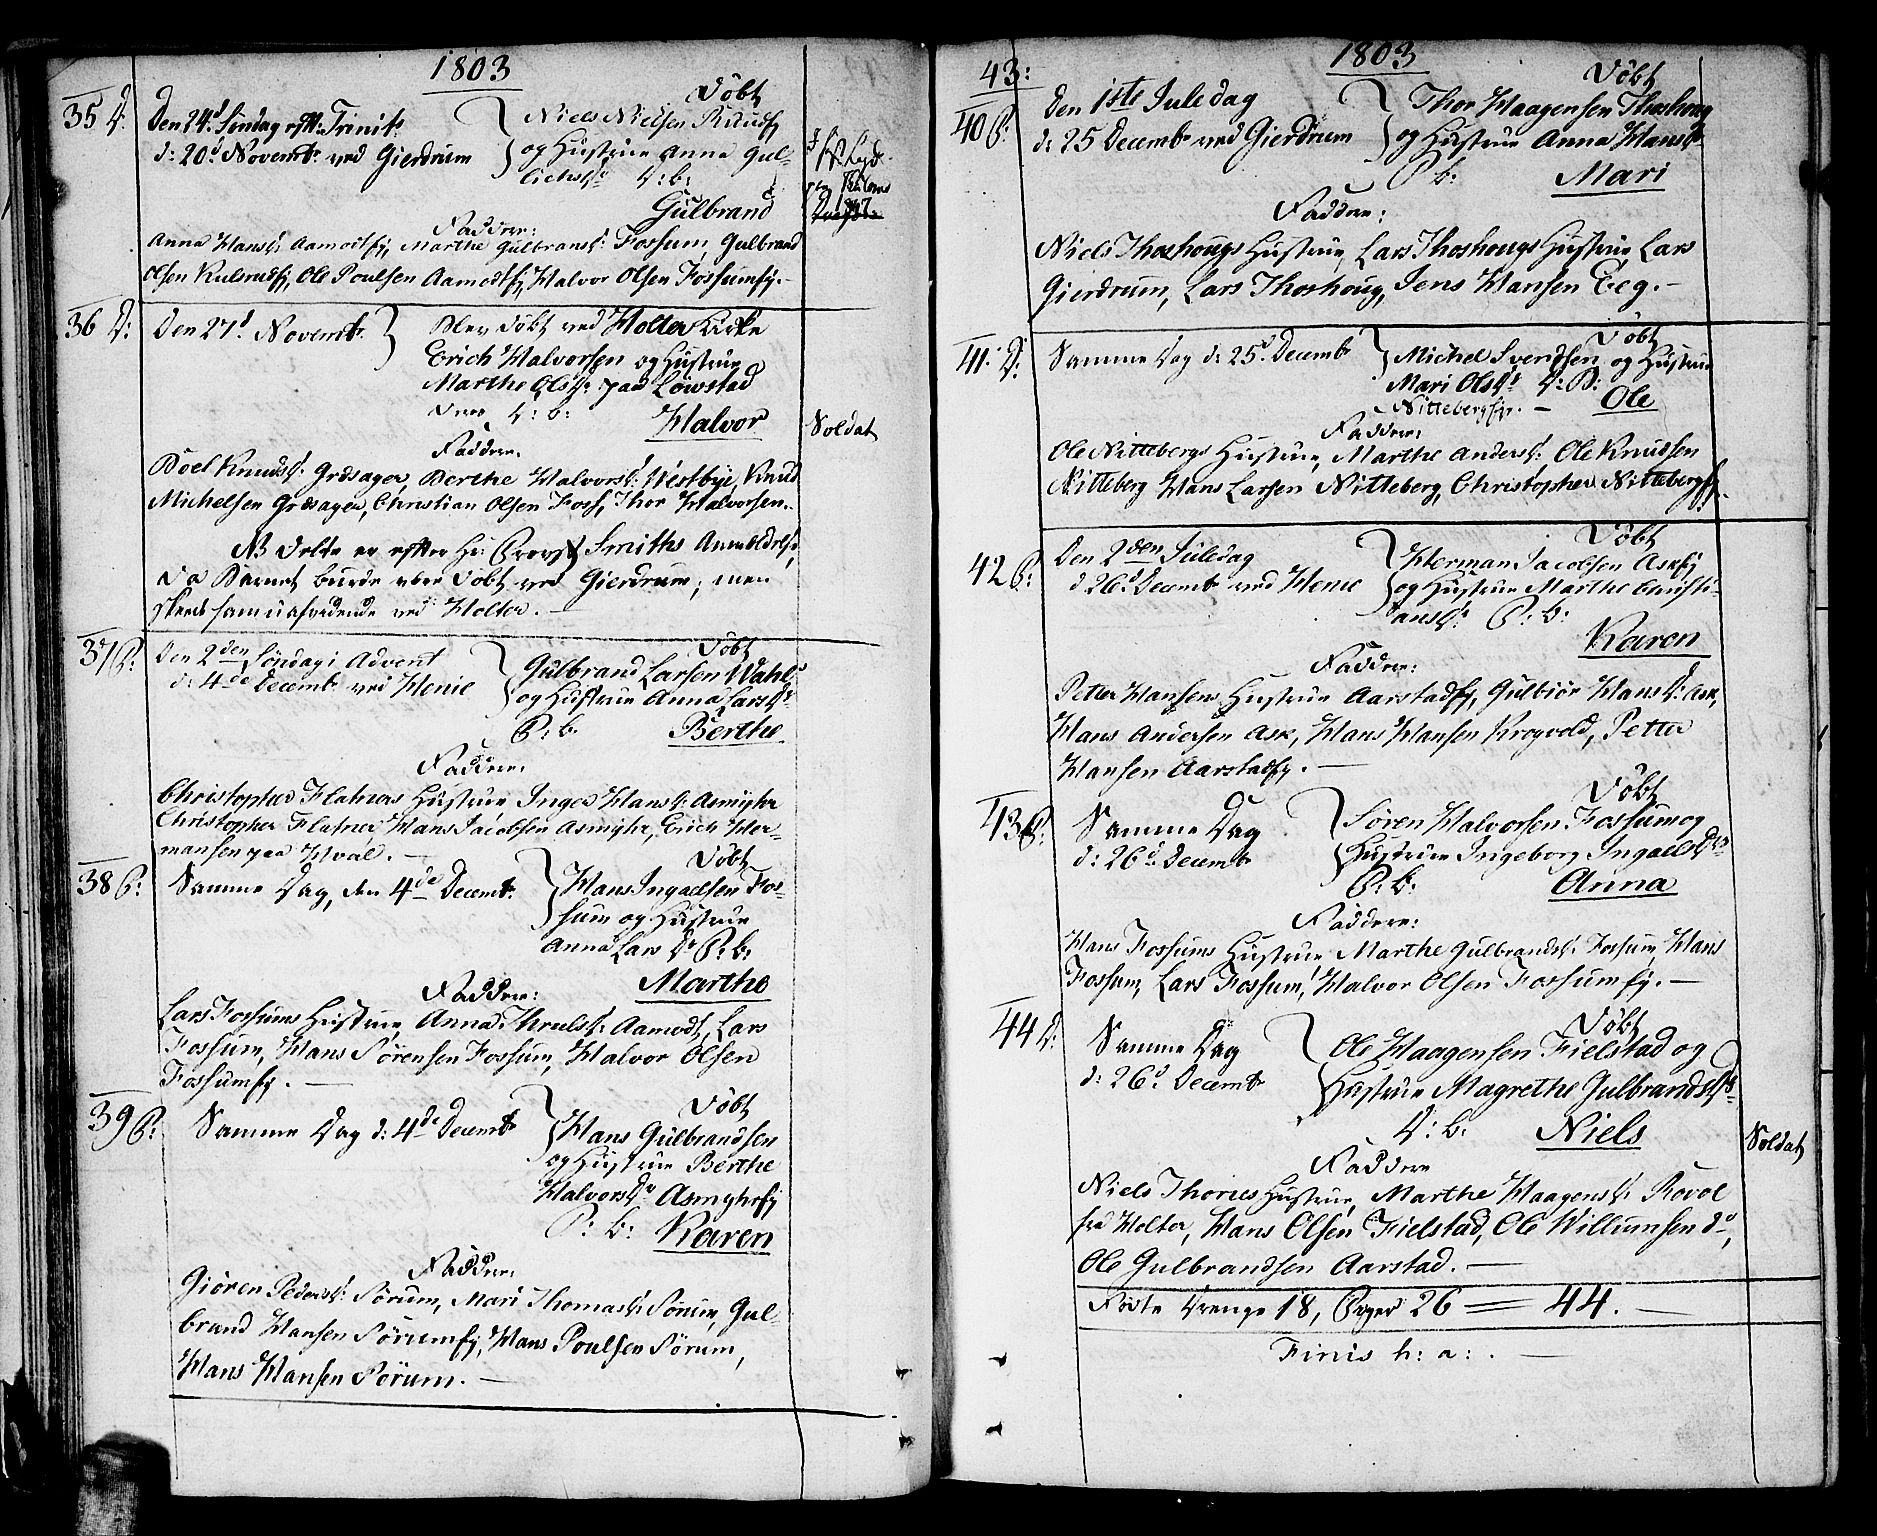 1803
35 D.
Den 24d. Søndag eft: Trinit:
d: 20d Novembr. ved Gierdrum
Døbt
Niels Nielsen Ruudfj
og Hustrue Anna Gul-
lichsdr D: b:
Gulbrand
Faddere:
Anna Hansd: Aamotfj, Marthe Gulbransd: Fossum, Gulbrand
Olsen Kulsrudfj, Ole Poulsen Aamodtfj, Halvor Olsen Fossumfj.-
36 D:
Den 27d. Novembr.
Blev døbt ved Holter Kirke
Erich Halvorsen og Hustrue
Marthe Olsdr. paa Lowstad
deres D: b:
Halvor
Soldat
Faddere.
Boel Knudsd: Græsager, Berthe Halvorsd: Westbye, Knud
Michelsen Græsager, Christian Olsen Foss, Thor Halvorsen.
NB dette er efter Hr: Provst Smiths Anmeldelse,
da Barnet burde være døbt ved Gierdrum; men
skeede ved Holter.
37 P:
Den 2den Søndag i Advent
d: 4de Decembr ved Henie
Døbt
Gulbrand Larsen Wahl
og Hustrue Anna Larsdr
P: b.
Berthe
Faddere:
Christopher Flatners Hustrue Inger Hansd: Asmyhr
Christopher Flatner Hans Jacobsen Asmyhr, Erich Her-
mansen paa Hval.
38 P:
Samme Dag, den 4de Decembr.
Døbt
Hans Ingaelsen Fos-
sum og Hustrue
Anna Lars Dr P: b:
Marthe
Faddere:
Lars Fossums Hustrue, Anna Thrulsd: Aamodt, Lars
Fossum, Hans Sørensen Fossum, Halvor Olsen
Fossumfj.
39 P:
Samme Dag d: 4de Decembr
Døbt
Hans Gulbrandsen
og Hustrue Berthe
Halvorsdr Asmyhrfj
P: b:
Karen
Faddere:
Giøren Pedersd: Sørum, Mari Thomasd: Sørum, Gul-
brand Hansen Sørumfj, Hans Poulsen Sørum,
Hans Hansen Sørum.
1803
43:
40 P:
Den 1ste Juledag
d: 25 Decembr ved Gierdrum
Døbt
Thor Haagensen Thoshoug
og Hustrue Anna Hansdr
P b:
Mari
Faddere:
Niels Thoshougs Hustrue, Lars Thoshougs Hustrue, Lars
Gierdrum, Lars Thoshoug, Jens Hansen Eeg.
41. D:
Samme Dag d: 25d. Decembr
Døbt
Michel Svendsen og Hustrue
Mari Olsdr D: B:
Nittebergfj.
Ole
Faddere:
Ole Nittebergs Hustrue, Marthe Andersd: Ole Knudsen
Nitteberg Hans Larsen Nitteberg, Christopher Nittebergfj.
42 P:
Den 2den Juledag
d 26d Decembr ved Henie
Døbt
Herman Jacobsen Askfj
og Hustrue Marthe Christi-
ansdr P: b:
Karen
Faddere:
Petter Hansens Hustrue Aarstadfj, Gulbiør Hansd: Ask,
Hans Andersen Ask, Hans Hansen Krogvold, Petter
Hansen Aarstadfj.
43 P:
Samme Dag
d: 26d. Decembr
Døbt
Søren Halvorsen Fossum og
Hustrue Ingeborg Ingaelsdr
P: b:
Anna
Faddere:
Hans Fossums Hustrue Marthe Gulbrandsd: Fossum, Hans
Fossum, Lars Fossum, Halvor Olsen Fossumfj.
44 D:
Samme Dag
d: 26d. Decembr
Døbt
Ole Haagensen Fielstad og
Hustrue Magrethe Gulbrandsdr
D: b:
Niels
Soldat
Faddere
Niels Thories Hustrue, Marthe Haagensd: Rovol
fra Holter, Hans Olsen Fielstad, Ole Willumsen do,
Ole Gulbrandsen Aarstad.
Fødte Drenge 18, Piger 26 = 44.
Finis h: a:.